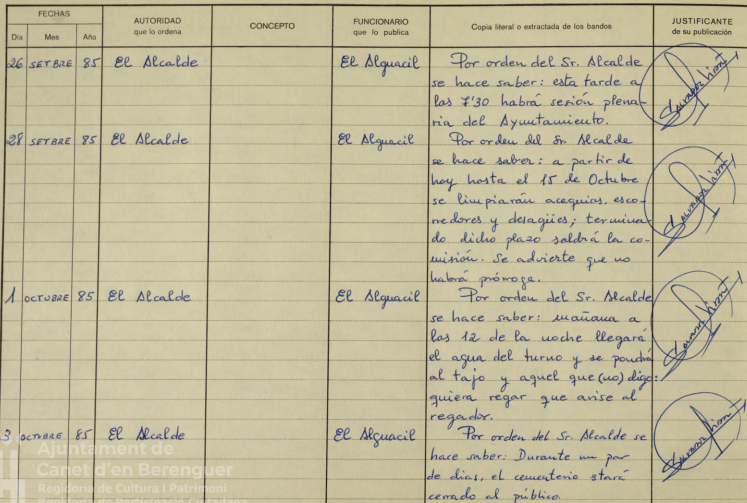 FECHAS
Día Mes Año
AUTORIDAD
que lo ordena
CONCEPTO
FUNCIONARIO
que lo publica
Copia literal o extractada de los bandos
JUSTIFICANTE
de su publicación
26 SETBRE 85 El Alcalde El Alguacil Por orden del Sr. Alcalde
se hace saber: esta tarde a
las 7'30 habrá sesión plena-
ria del Ayuntamiento.
28 SETBRE 85 El Alcalde El Alguacil Por orden del Sr. Alcalde
se hace saber: a partir de
hoy hasta el 15 de Octubre
se limpiarán acequias, esco-
rredores y desagües; termina-
do dicho plazo saldrá la co-
misión. Se advierte que no
habrá prórroga.
1 OCTUBRE 85 El Alcalde El Alguacil Por orden del Sr. Alcalde
se hace saber: mañana a
las 12 de la noche llegará
el agua del turno y se pondrá
al tajo y aquel que (no) digo:
quiera regar que avise al
regador.
3 OCTUBRE 85 El Alcalde El Alguacil Por orden del Sr. Alcalde se
hace saber: Durante un par
de dias, el cementerio stará
cerrado al público.
Ajuntament de
Canet d'en Berenguer
Regidoria de Cultura i Patrimoni